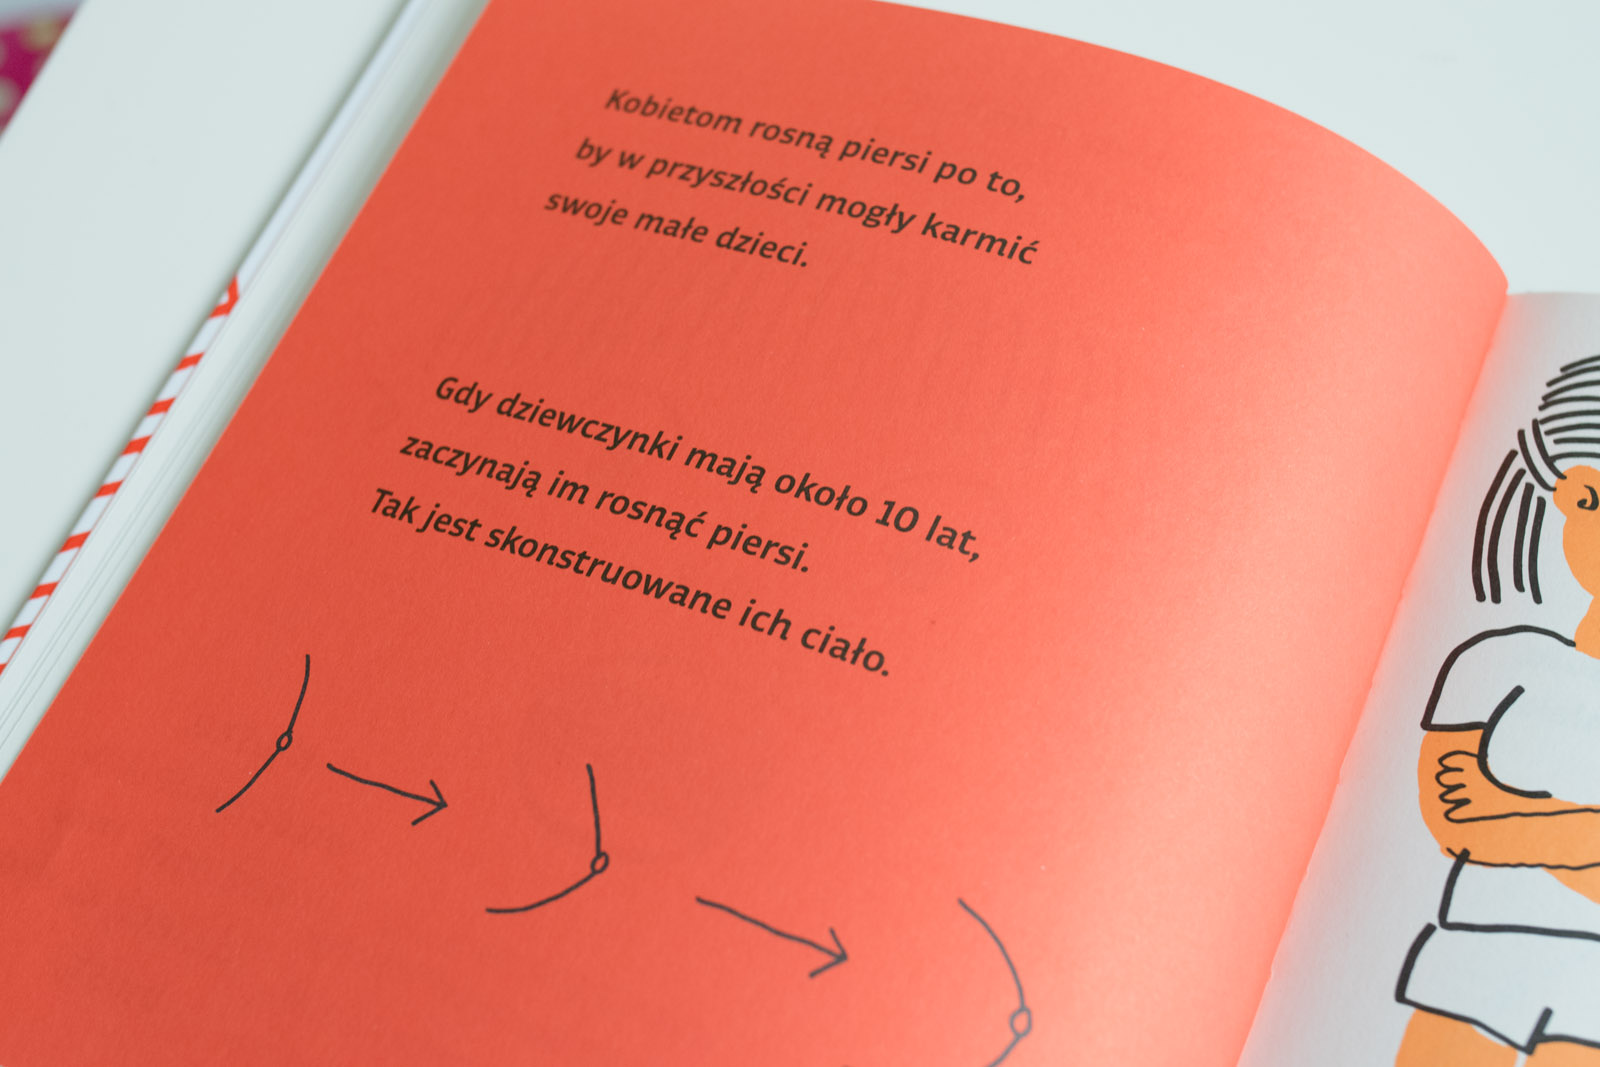 Kobietom rosną piersi po to,
by w przyszłości mogły karmić
swoje małe dzieci.
Gdy dziewczynki mają około 10 lat,
zaczynają im rosnąć piersi.
Tak jest skonstruowane ich ciało.